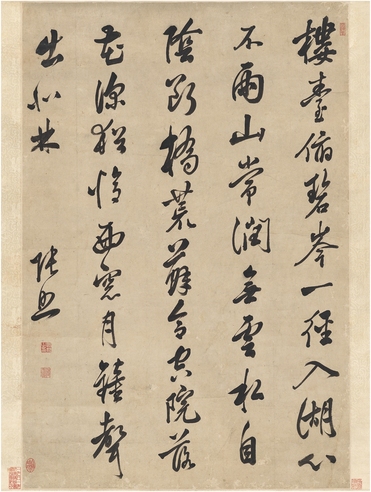 樓臺俯碧岑一徑入湖心
不雨山常潤無雲松自
陰斷橋荒蘚合空院落
花深猶憶西窗月鐘聲
出北林
張照